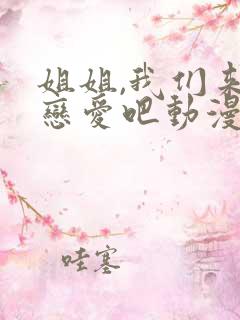 姐姐,我们来
戀愛吧動漫
哇塞